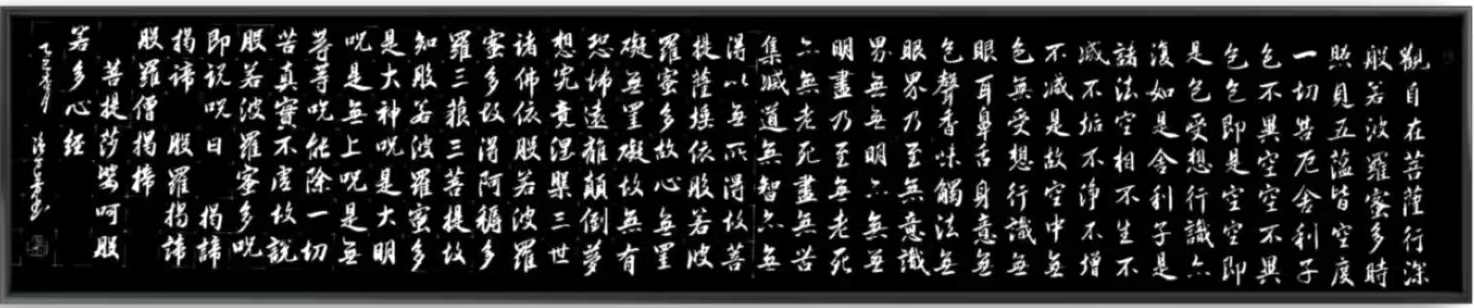 觀自在菩薩行深
般若波羅蜜多時
照見五蘊皆空度
一切苦厄舍利子
色不異空空不異
色色即是空空即
是色受想行識亦
復如是舍利子是
諸法空相不生不
滅不垢不淨不增
不減是故空中無
色無受想行識無
眼耳鼻舌身意無
色聲香味觸法無
眼界乃至無意識
界無無明亦無無
明盡乃至無老死
亦無老死盡無苦
集滅道無智亦無
得以無所得故菩
提薩埵依般若波
羅蜜多故心無罣
礙無罣礙故無有
恐怖遠離顛倒夢
想究竟涅槃三世
諸佛依般若波羅
蜜多故得阿耨多
羅三藐三菩提故
知般若波羅蜜多
是大神呪是大明
呪是無上呪是無
等等呪能除一切
苦真實不虛故說
般若波羅蜜多呪
即說呪曰 揭諦
揭諦 般羅揭諦
般羅僧揭諦
菩提莎婆呵般
若多心経